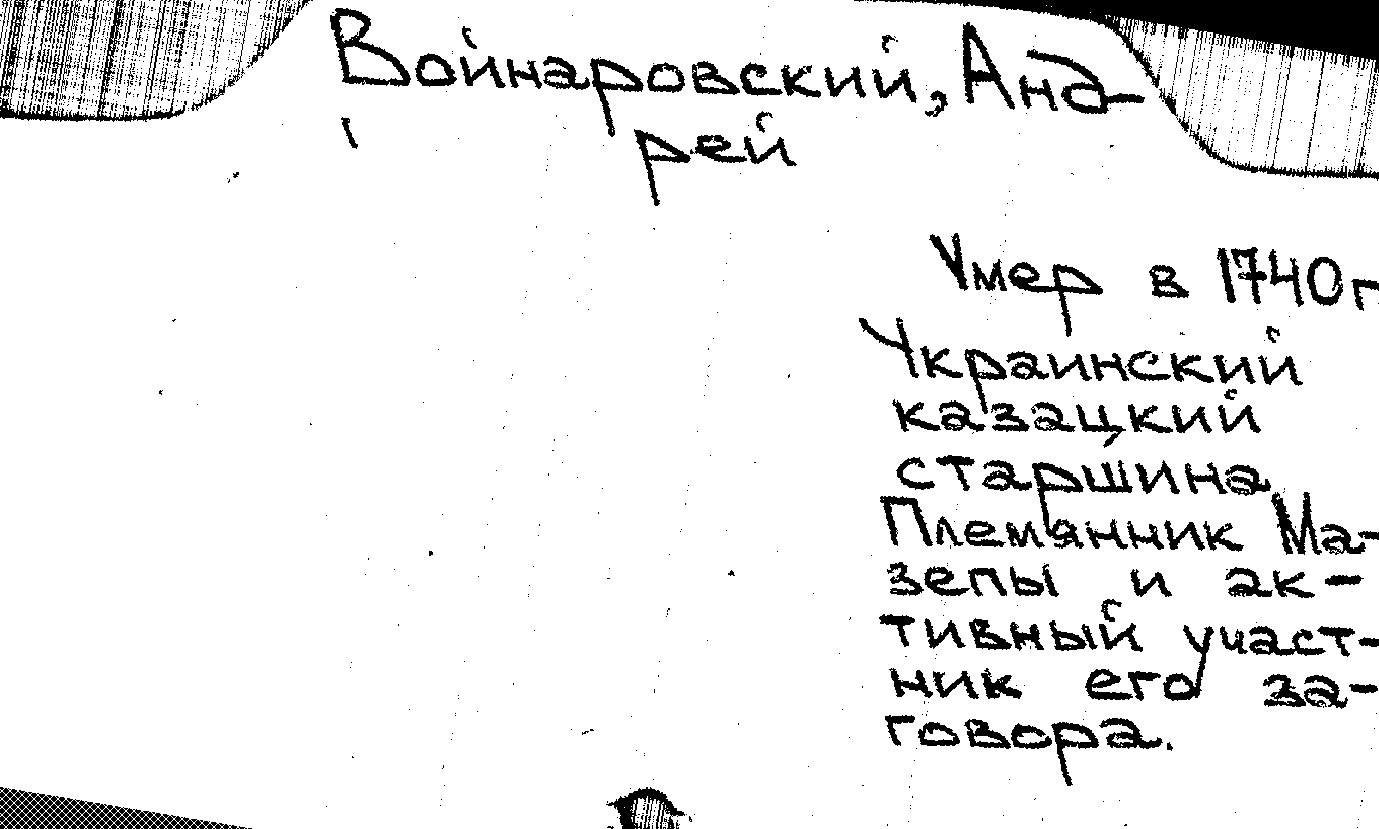 Войнаровский, Анд-
рей
Умер в 1740 г
Украинский
казацкий
старшина
Племянник Ма-
зепы и ак-
тивный участ-
ник его за-
говора.